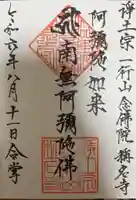 浄土宗 一行山 念佛院 稱名寺
阿彌陀如来
南無阿彌陀佛
六年八月十一日 合掌